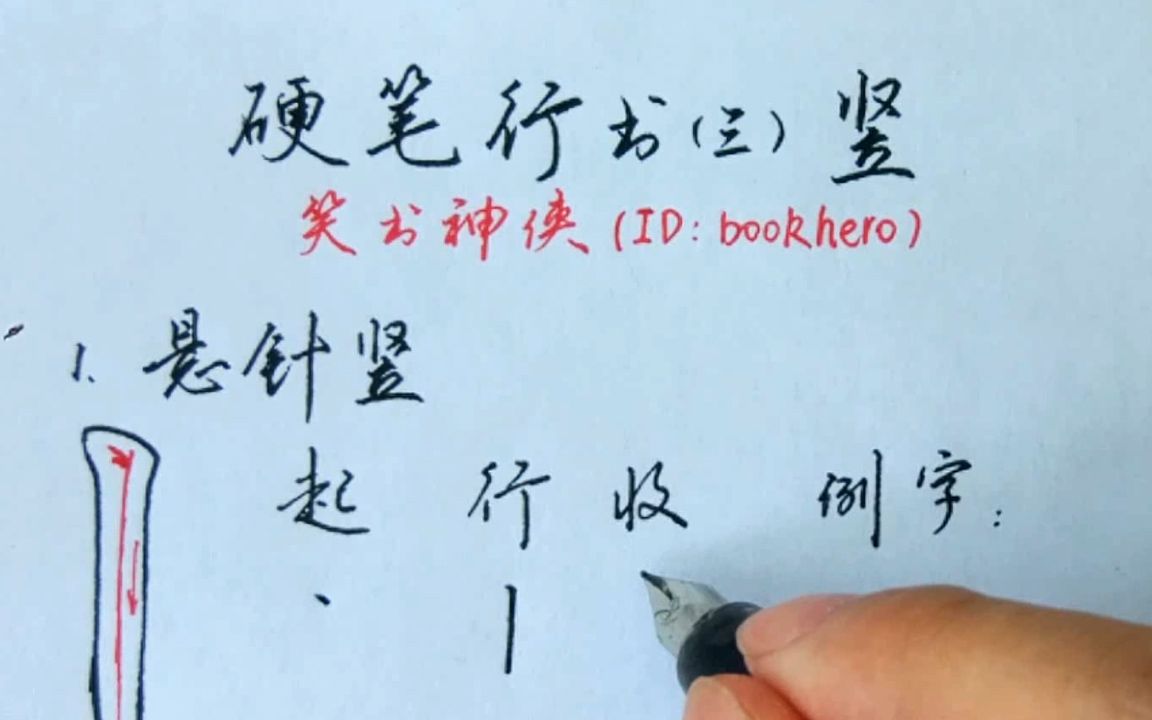 硬笔行书(三)竖
笑书神侠(ID:bookhero)
1.悬针竖
起 行 收 例字: